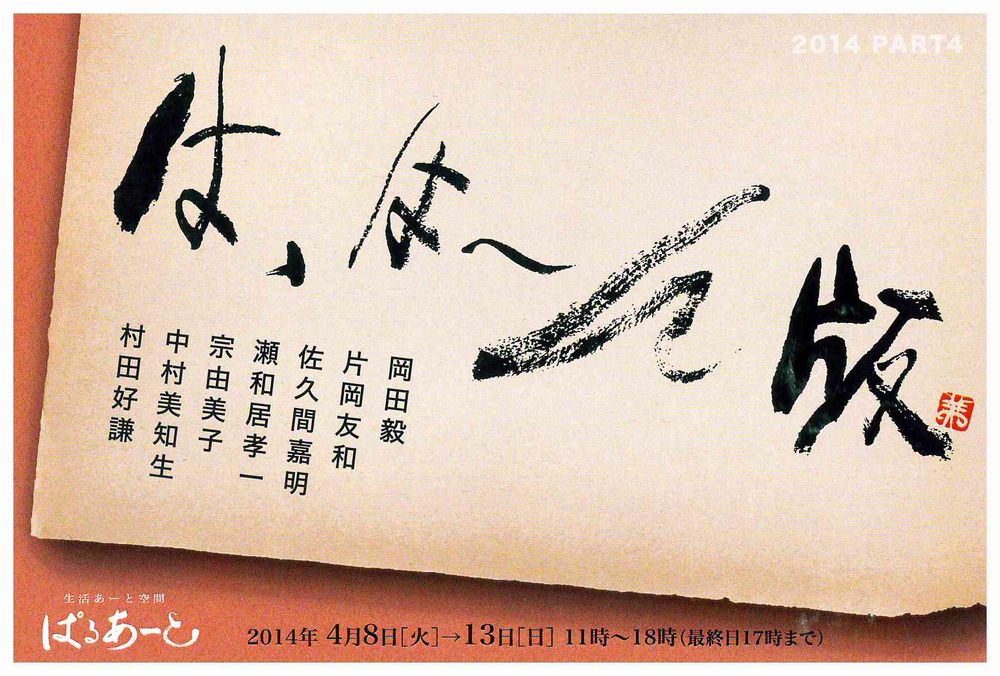 2014 PART4
は、は〜ん版
岡田毅
片岡友和
佐久間嘉明
瀬和居孝一
宗由美子
中村美知生
村田好謙
生活あーと空間
ぱるあーと
2014年 4月8日[火]→13日[日] 11時〜18時(最終日17時まで)